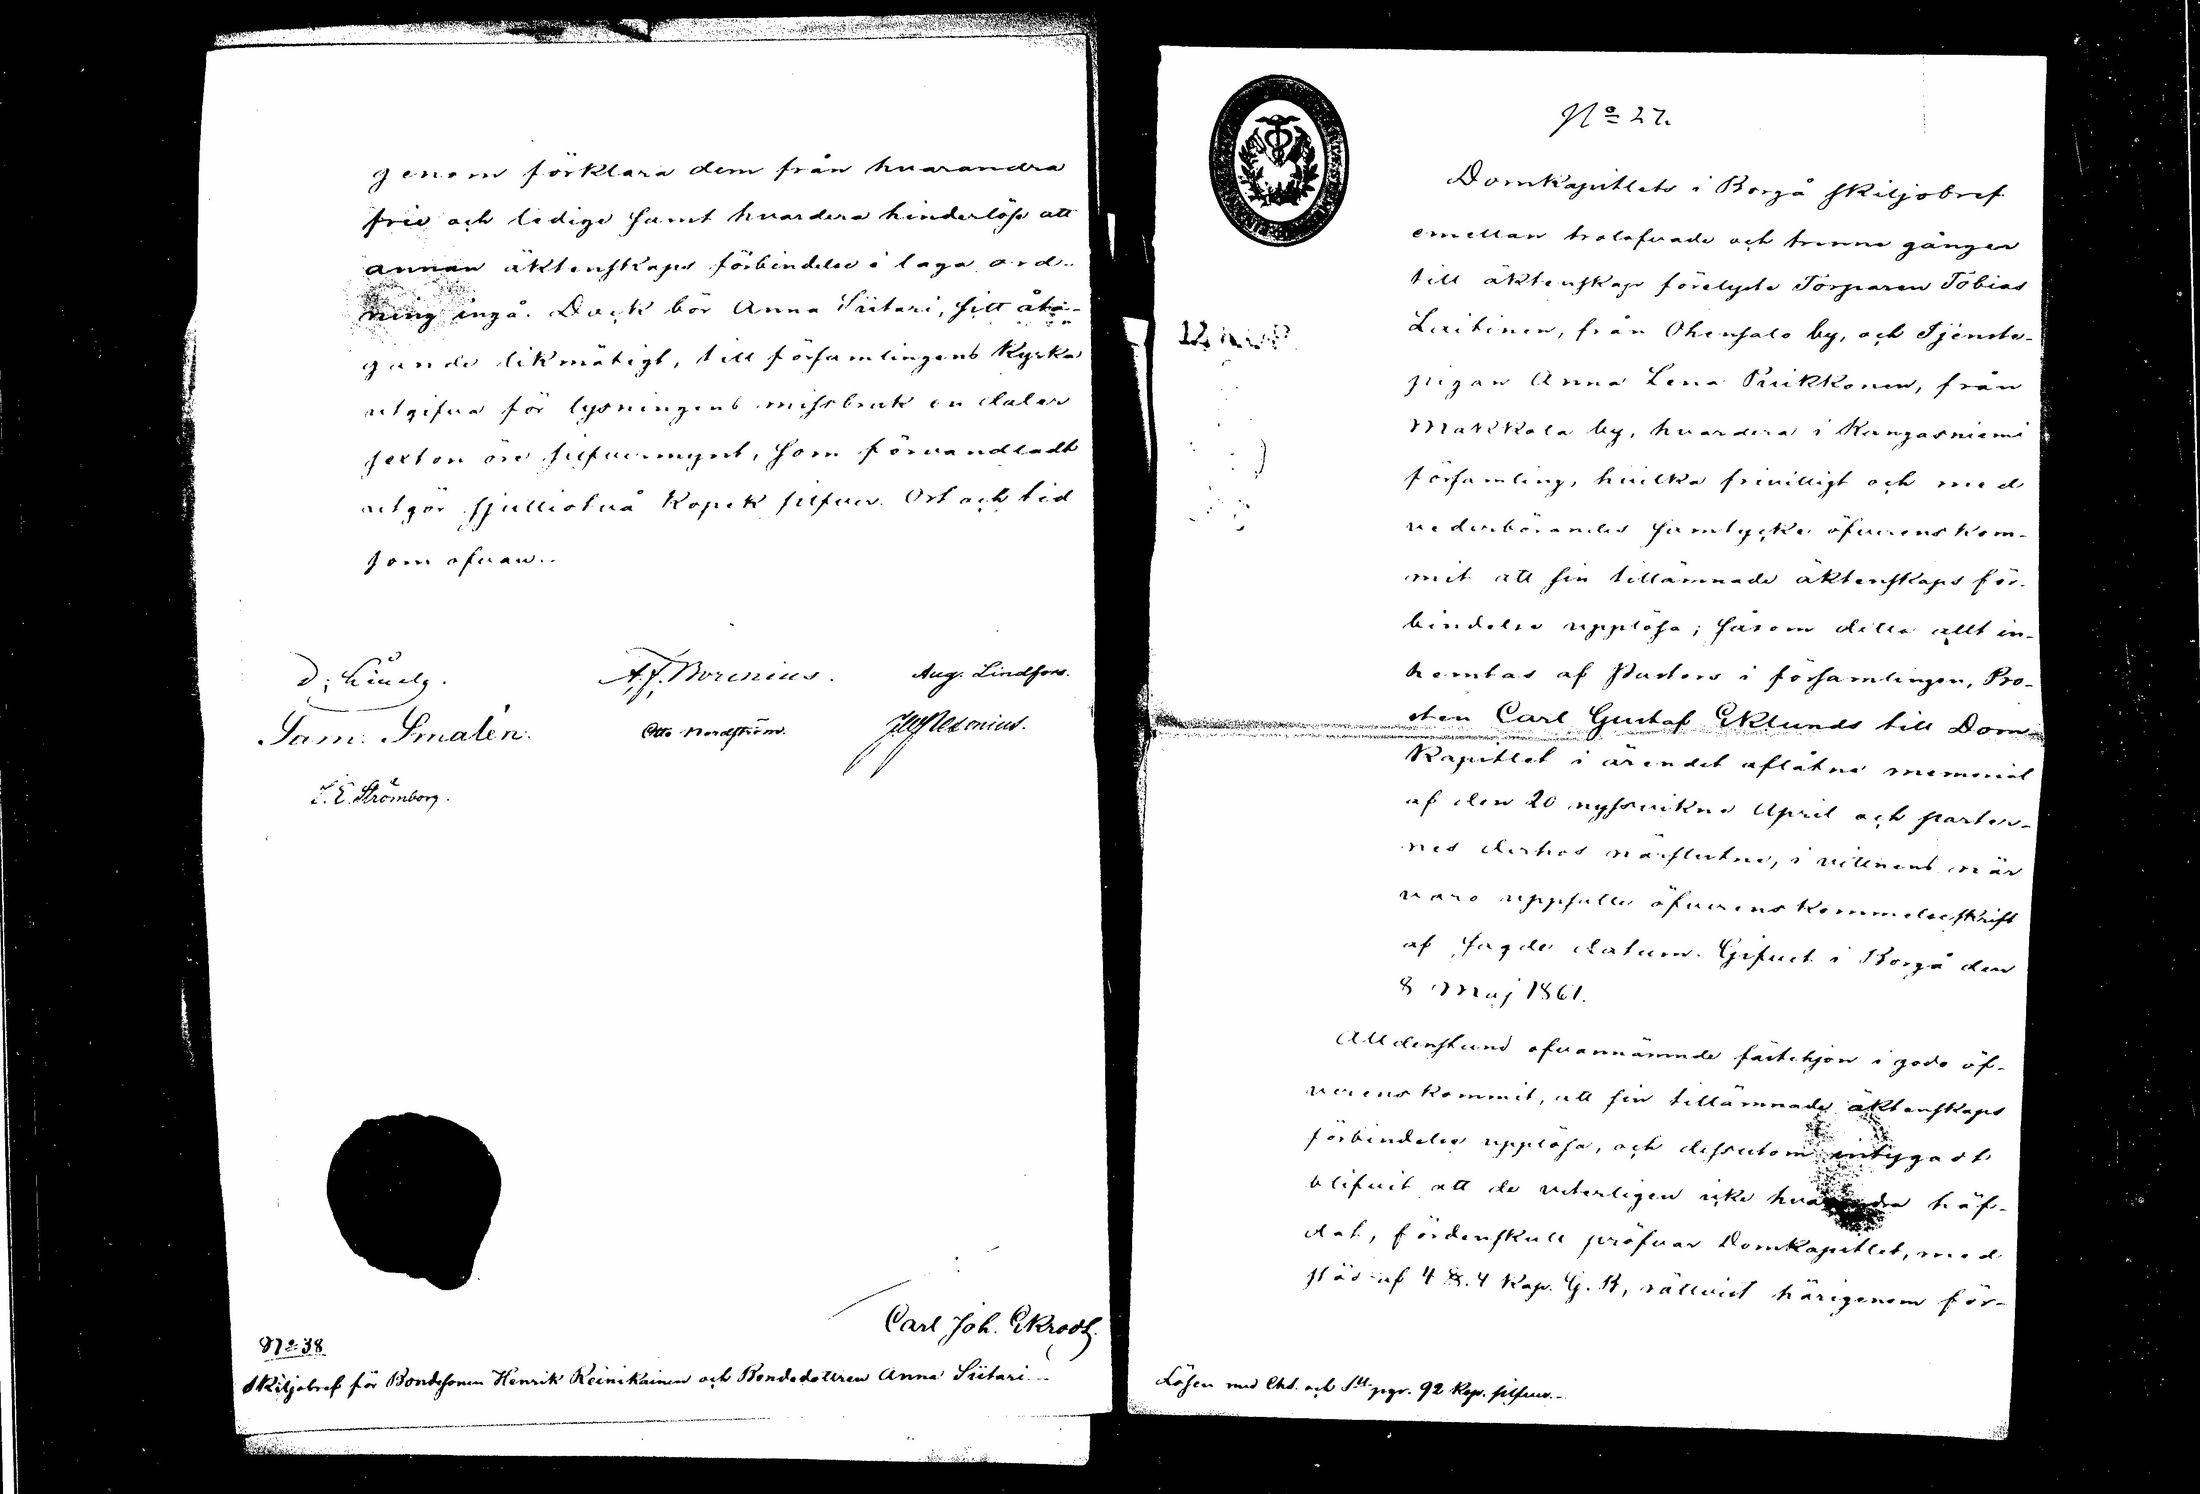 genom förklara dem från hvarandra
frie och ledige samt hvardera hinderlöse att
annan äktenskaps förbindelse i laga ord-
ning ingå. Dock bör Anna Siitari, sitt åta-
gande likmätigt, till församlingens Kyrka
utgifva för lysningens missbruk en daler
sexton öre silfvermynt, som förvandladt
utgör sjuttiotvå Kopek silfver. Ort och tid
som ofvan.
A. J. Borenius. Aug. Lindfors.
Sam. Smalén. Otto Nordström.
J. E. Strömborg.
Carl Joh. Ekroos
No 38
Skiljobref för Bondesonen Henrik Reinikainen och Bondedottren Anna Siitari
No 27.
Domkapitlets i Borgå skiljobref
emellan trolofvade och trenne gånger
till äktenskap förelyste Torparen Tobias
Laitinen, från Ohensalo by, och Tjenste-
pigan Anna Lena Puikkonen, från
Makkola by, hvardera i Kangasniemi
församling, hvilka frivilligt och med
vederbörandes samtycke öfverenskom-
mit att sin tillämnade äktenskaps för-
bindelse upplösa; såsom detta allt in-
hemtas af Pastors i församlingen, Pro-
sten Carl Gustaf Eklunds till Dom-
Kapitlet i ärendet aflåtne memorial
af den 20 nyssvikne April och parter-
nes derhos närslutne, i vittnens när
varo uppsatte öfverenskommelseskrift
af sagde datum. Gifvet i Borgå den
8 Maj 1861.
Alldenstund ofvannämnde fästehjon i godo öf-
verenskommit, att sin tillämnade äktenskaps
förbindelse upplösa, och dessutom intygadt
blifvit att de veterligen icke hvarandra häf-
dat, fördenskull pröfvar Domkapitlet, med
stöd af 4 §. 4 Kap. G. B, rättvist härigenom för-
Lösen med Cht. och St. pgr. 92 Kop. silfver.